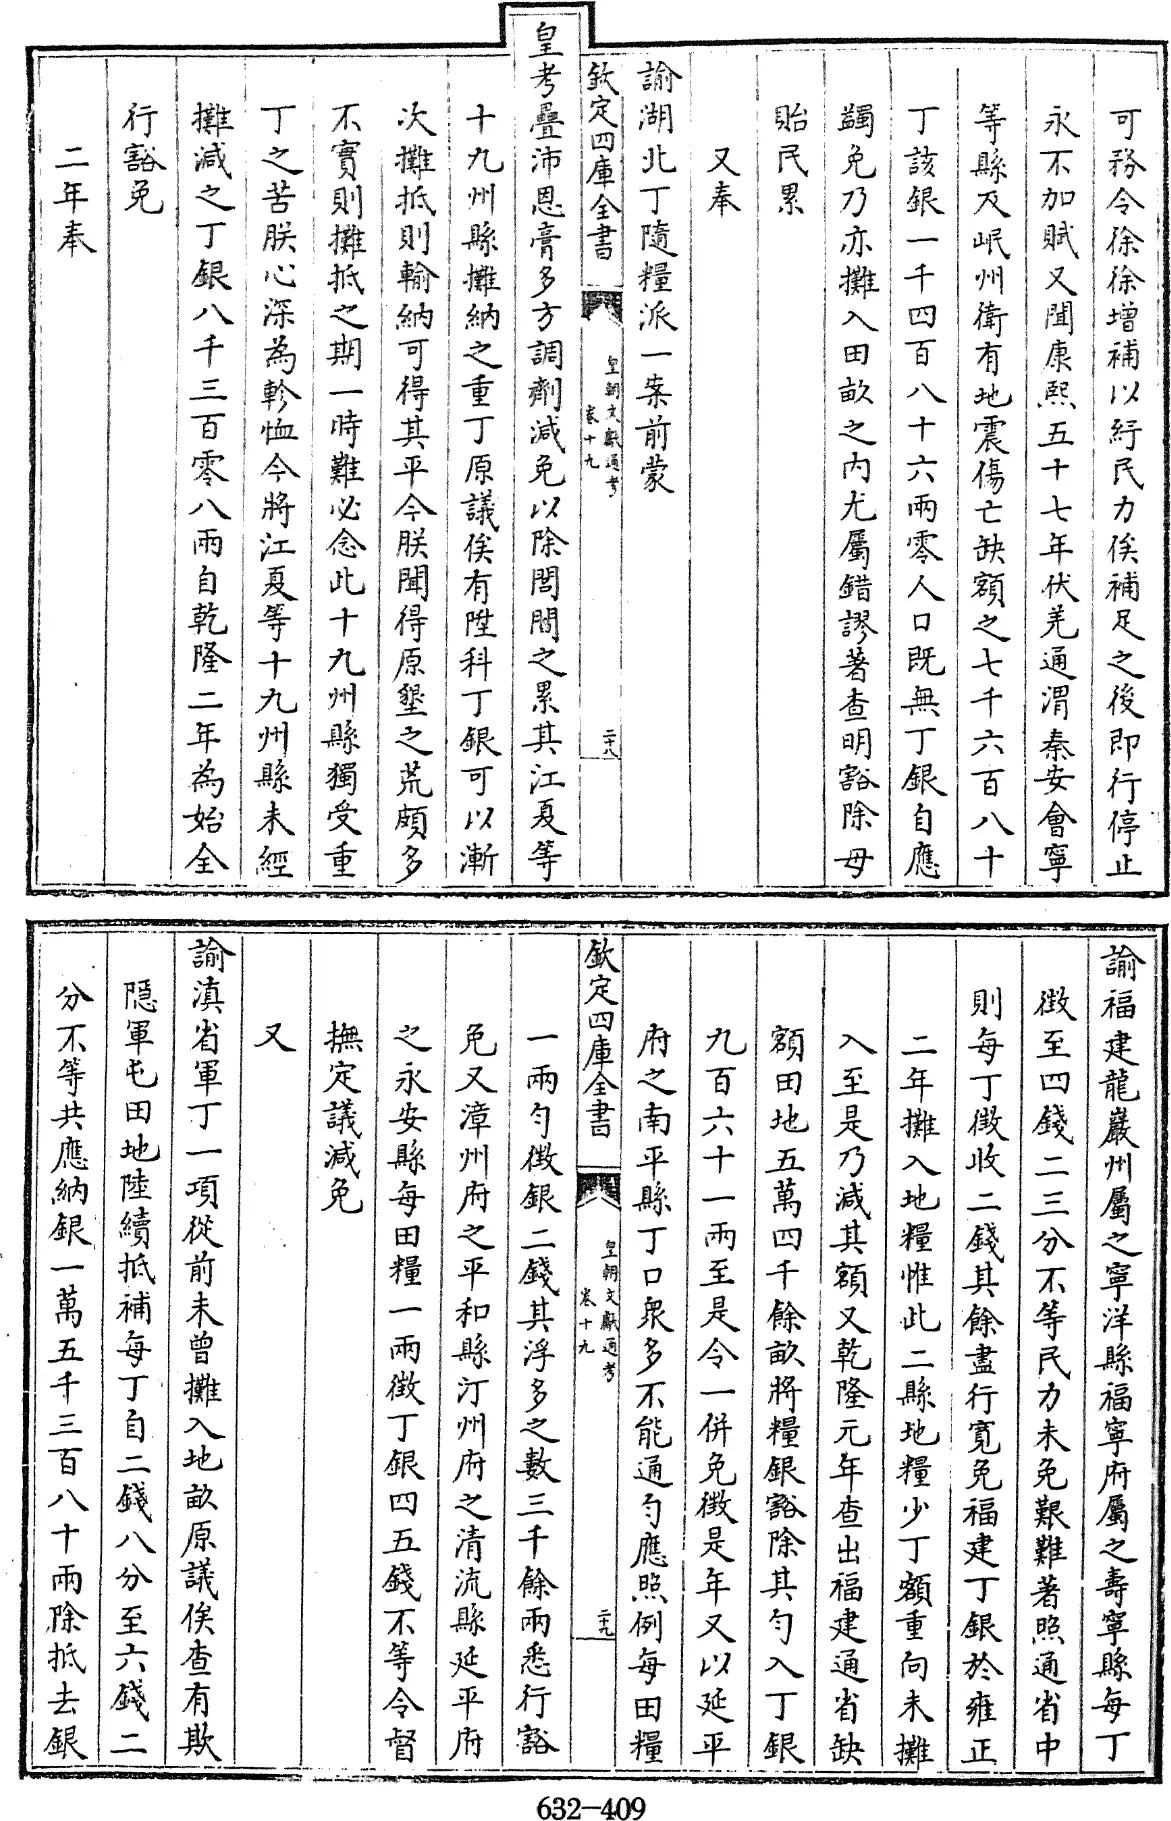 可務令徐徐增補以紓民力俟補足之後即行停止
永不加賦又聞康熙五十七年伏羌通渭秦安會寧
等縣及岷州衛有地震傷亡缺額之七千六百八十
丁該銀一千四百八十六兩零人口既無丁銀自應
蠲免乃亦攤入田畝之內尤屬錯謬著查明豁除毋
貽民累
又奉
諭湖北丁隨糧派一案前蒙
欽定四庫全書
皇朝文獻通考
卷十九
二十八
皇考疊沛恩膏多方調劑減免以除閭閻之累其江夏等
十九州縣攤納之重丁原議俟有陞科丁銀可以漸
次攤抵則輸納可得其平今朕聞得原墾之荒頗多
不實則攤抵之期一時難必念此十九州縣獨受重
丁之苦朕心深為軫恤今將江夏等十九州縣未經
攤減之丁銀八千三百零八兩自乾隆二年為始全
行豁免
二年奉
諭福建龍巖州屬之寧洋縣福寧府屬之壽寧縣每丁
徵至四錢二三分不等民力未免艱難著照通省中
則每丁徵收二錢其餘盡行寬免福建丁銀於雍正
二年攤入地糧惟此二縣地糧少丁額重向未攤
入至是乃減其額又乾隆元年查出福建通省缺
額田地五萬四千餘畝將糧銀豁除其勻入丁銀
九百六十一兩至是令一併免徵是年又以延平
府之南平縣丁口眾多不能通勻應照例每田糧
欽定四庫全書
皇朝文獻通考
卷十九
二十九
一兩勻徵銀二錢其浮多之數三千餘兩悉行豁
免又漳州府之平和縣汀州府之清流縣延平府
之永安縣每田糧一兩徵丁銀四五錢不等令督
撫定議減免
又
諭滇省軍丁一項從前未曾攤入地畝原議俟查有欺
隱軍屯田地陸續抵補每丁自二錢八分至六錢二
分不等共應納銀一萬五千三百八十兩除抵去銀
632-409